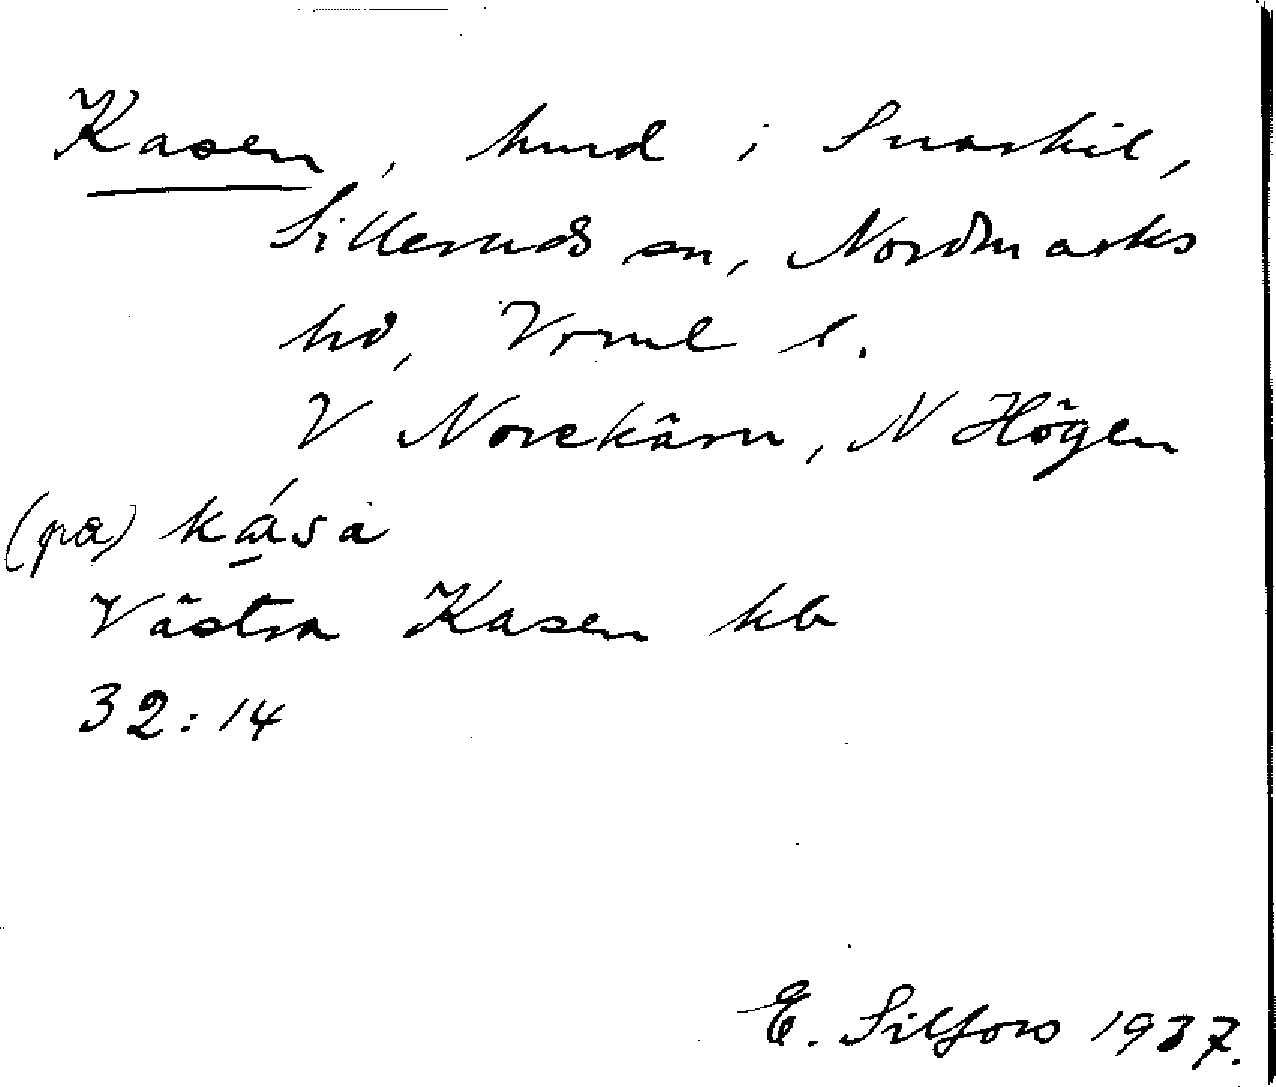 Kasen, hmd i Snarkil,
Silleruds sn, Nordmarks
hd, Vrml l.
V Norekärn, N Högen
(på) ká̱sa
Västra Kasen kb
32:14
E. Silfors 1937.